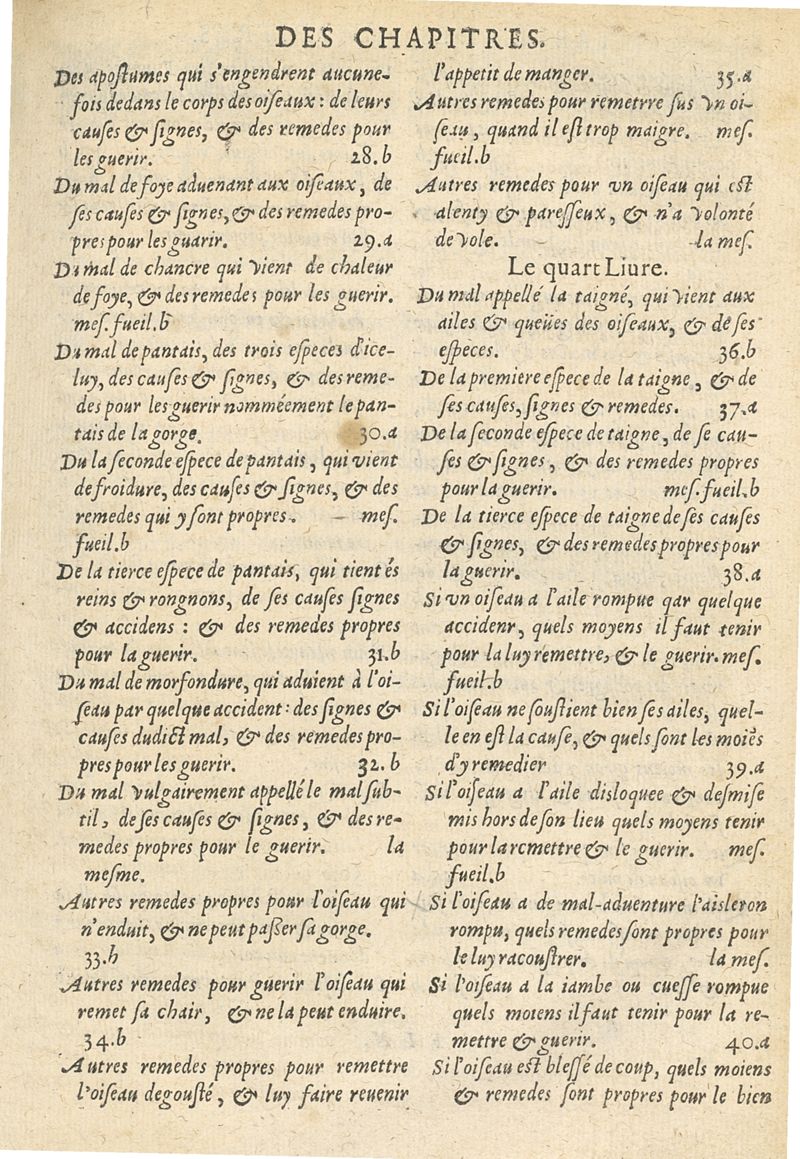 DES CHAPITRES.
Des apoſtumes qui s'engendrent aucune-
fois dedans le corps des oiſeaux : de leurs
cauſes & ſignes, & des remedes pour
les guerir. 28.b
Du mal de foye aduenant aux oiſeaux, de
ſes cauſes & ſignes, & des remedes pro-
pres pour les guarir. 29.a
Du mal de chancre qui vient de chaleur
de foye, & des remedes pour les guerir.
meſ. fueil.b
Du mal de pantais, des trois eſpeces d'ice-
luy, des cauſes & ſignes, & des reme-
des pour les guerir nomméement le pan-
tais de la gorge. 30.a
Du la ſeconde eſpece de pantais, qui vient
de froidure, des cauſes & ſignes, & des
remedes qui y ſont propres. meſ.
fueil.b
De la tierce eſpece de pantais, qui tient és
reins & rongnons, de ſes cauſes ſignes
& accidens : & des remedes propres
pour la guerir. 31.b
Du mal de morfondure, qui aduient à l'oi-
ſeau par quelque accident : des ſignes &
cauſes dudict mal, & des remedes pro-
pres pour les guerir. 32.b
Du mal vulgairement appellé le mal ſub-
til, de ſes cauſes & ſignes, & des re-
medes propres pour le guerir. la
meſme.
Autres remedes propres pour l'oiſeau qui
n'enduit, & ne peut paſſer ſa gorge.
33.h
Autres remedes pour guerir l'oiſeau qui
remet ſa chair, & ne la peut enduire.
34.b
Autres remedes propres pour remettre
l'oiſeau degouſté, & luy faire reuenir
l'appetit de manger. 35.a
Autres remedes pour remetrre ſus vn oi-
ſeau, quand il eſt trop maigre. meſ.
fueil.b
Autres remedes pour vn oiſeau qui eſt
alenty & pareſſeux, & n'a volonté
de vole. la meſ.
Le quart Liure.
Du mal appellé la taigné, qui vient aux
ailes & queües des oiſeaux, & de ſes
eſpeces. 36.b
De la premiere eſpece de la taigne, & de
ſes cauſes, ſignes & remedes. 37.a
De la ſeconde eſpece de taigne, de ſe cau-
ſes & ſignes, & des remedes propres
pour la guerir. meſ. fueil.b
De la tierce eſpece de taigne de ſes cauſes
& ſignes, & des remedes propres pour
la guerir. 38.a
Si vn oiſeau a l'aile rompue qar quelque
accidenr, quels moyens il faut tenir
pour la luy remettre, & le guerir. meſ.
fueil.b
Si l'oiſeau ne ſouſtient bien ſes ailes, quel-
le en eſt la cauſe, & quels ſont les moiẽs
d'y remedier 39.a
Si l'oiſeau a l'aile disloquee & deſmiſe
mis hors de ſon lieu quels moyens tenir
pour la rcmettre & le guerir. meſ.
fueil.b
Si l'oiſeau a de mal-aduenture l'aisleron
rompu, quels remedes ſont propres pour
le luy racouſtrer. la meſ.
Si l'oiſeau a la iambe ou cueſſe rompue
quels moiens il faut tenir pour la re-
mettre & guerir. 40.a
Si l'oiſeau eſt bleſſé de coup, quels moiens
& remedes ſont propres pour le bien